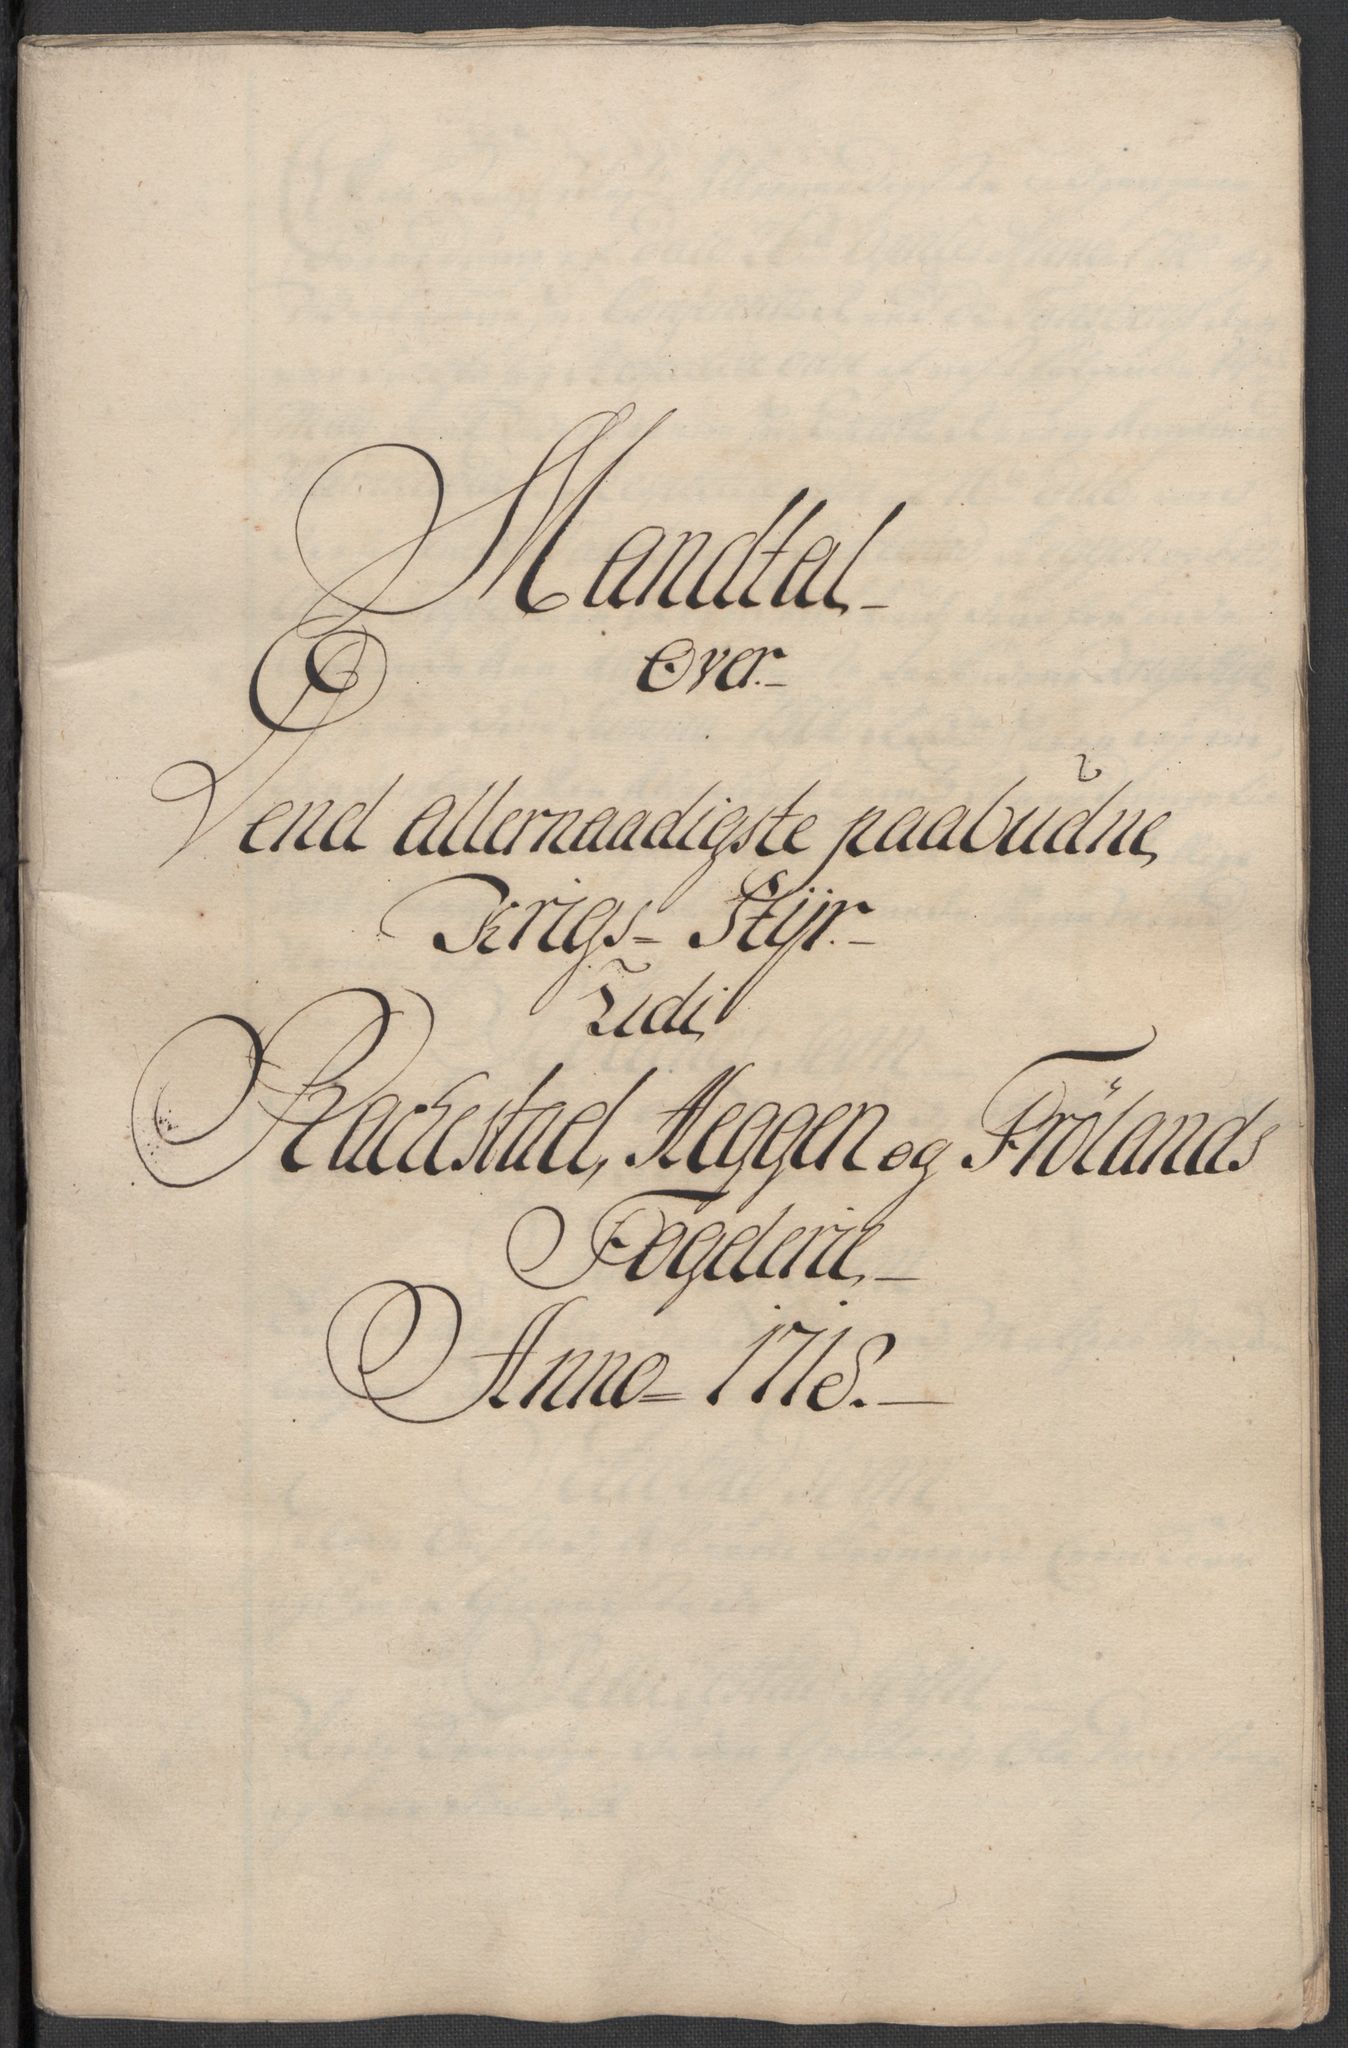 Mandtal
Over
Dend allernaadigste paabudne
Krigs- Styr
Udi
Rackestad, Heggen og Frölands
Fogderie
Anno 1718.